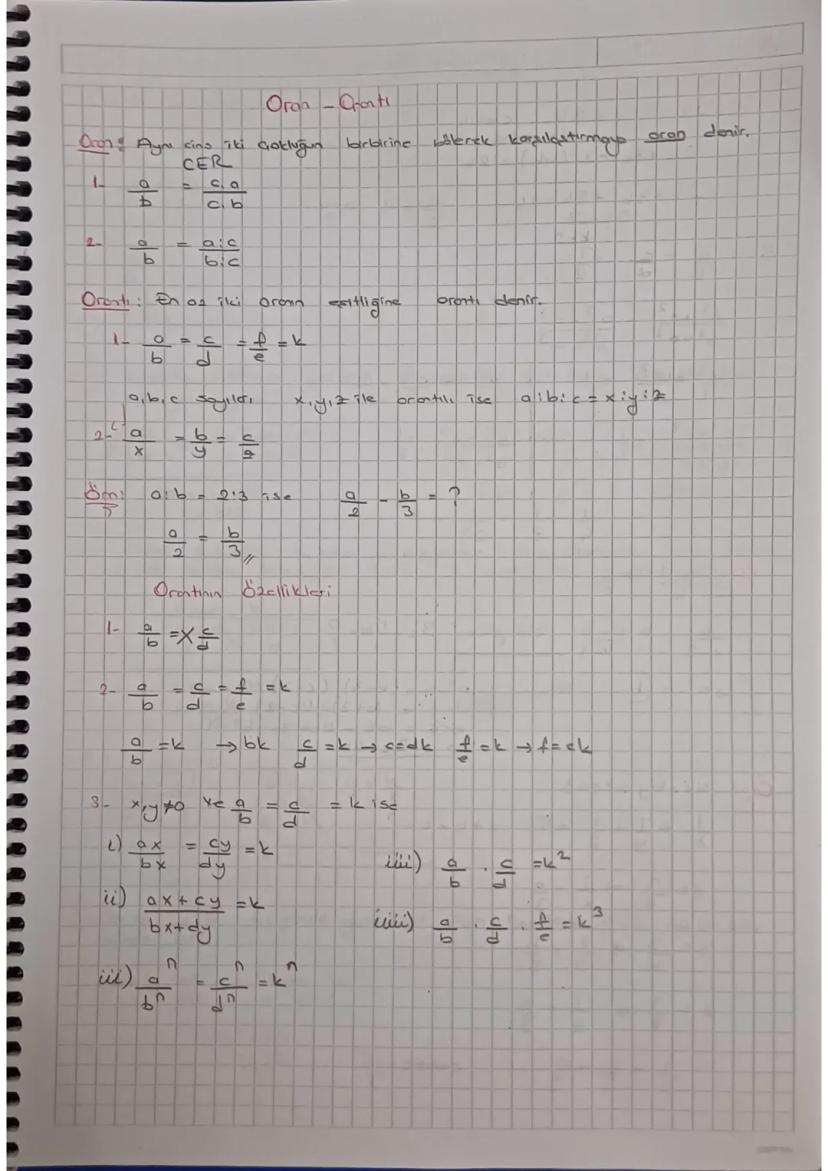 Oran - Orantı
Oran: Aynı cins iki çokluğun birbirine bölerek karşılaştırmaya oran denir.
CER
1- a/b = c.a/c.b
2- a/b = a:c/b:c
Orantı: En az iki oranın eşitliğine orantı denir.
1- a/b = c/d = f/e = k
a,b,c sayıları x,y,z ile orantılı ise a:b:c = x:y:z
2- a/x = b/y = c/z
Örn: a:b = 2:3 ise a/2 - b/3 = ?
a/2 = b/3 //
Orantının Özellikleri
1- a/b =X c/d
2- a/b = c/d = f/e = k
a/b = k → bk c/d = k → c=dk f/e = k → f=ek
3- x,y≠0 ve a/b = c/d = k ise
i) ax/bx = cy/dy = k
iiii) a/b . c/d = k²
ii) ax+cy/bx+dy = k
iiiii) a/b . c/d . f/e = k³
iii) aⁿ/bⁿ = cⁿ/dⁿ = kⁿ